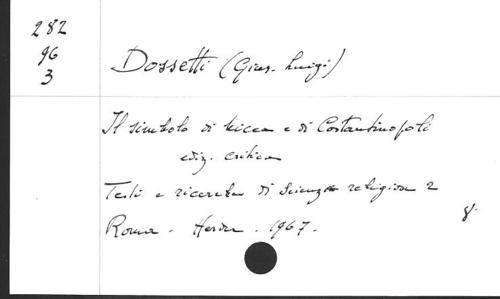 282
96
3
Dossetti (Gius. Luigi)
Il simbolo di Nicea e di Costantinopoli
ediz. critica
Testi e ricerche di Scienze religiose 2
Roma - Herder - 1967.
8°